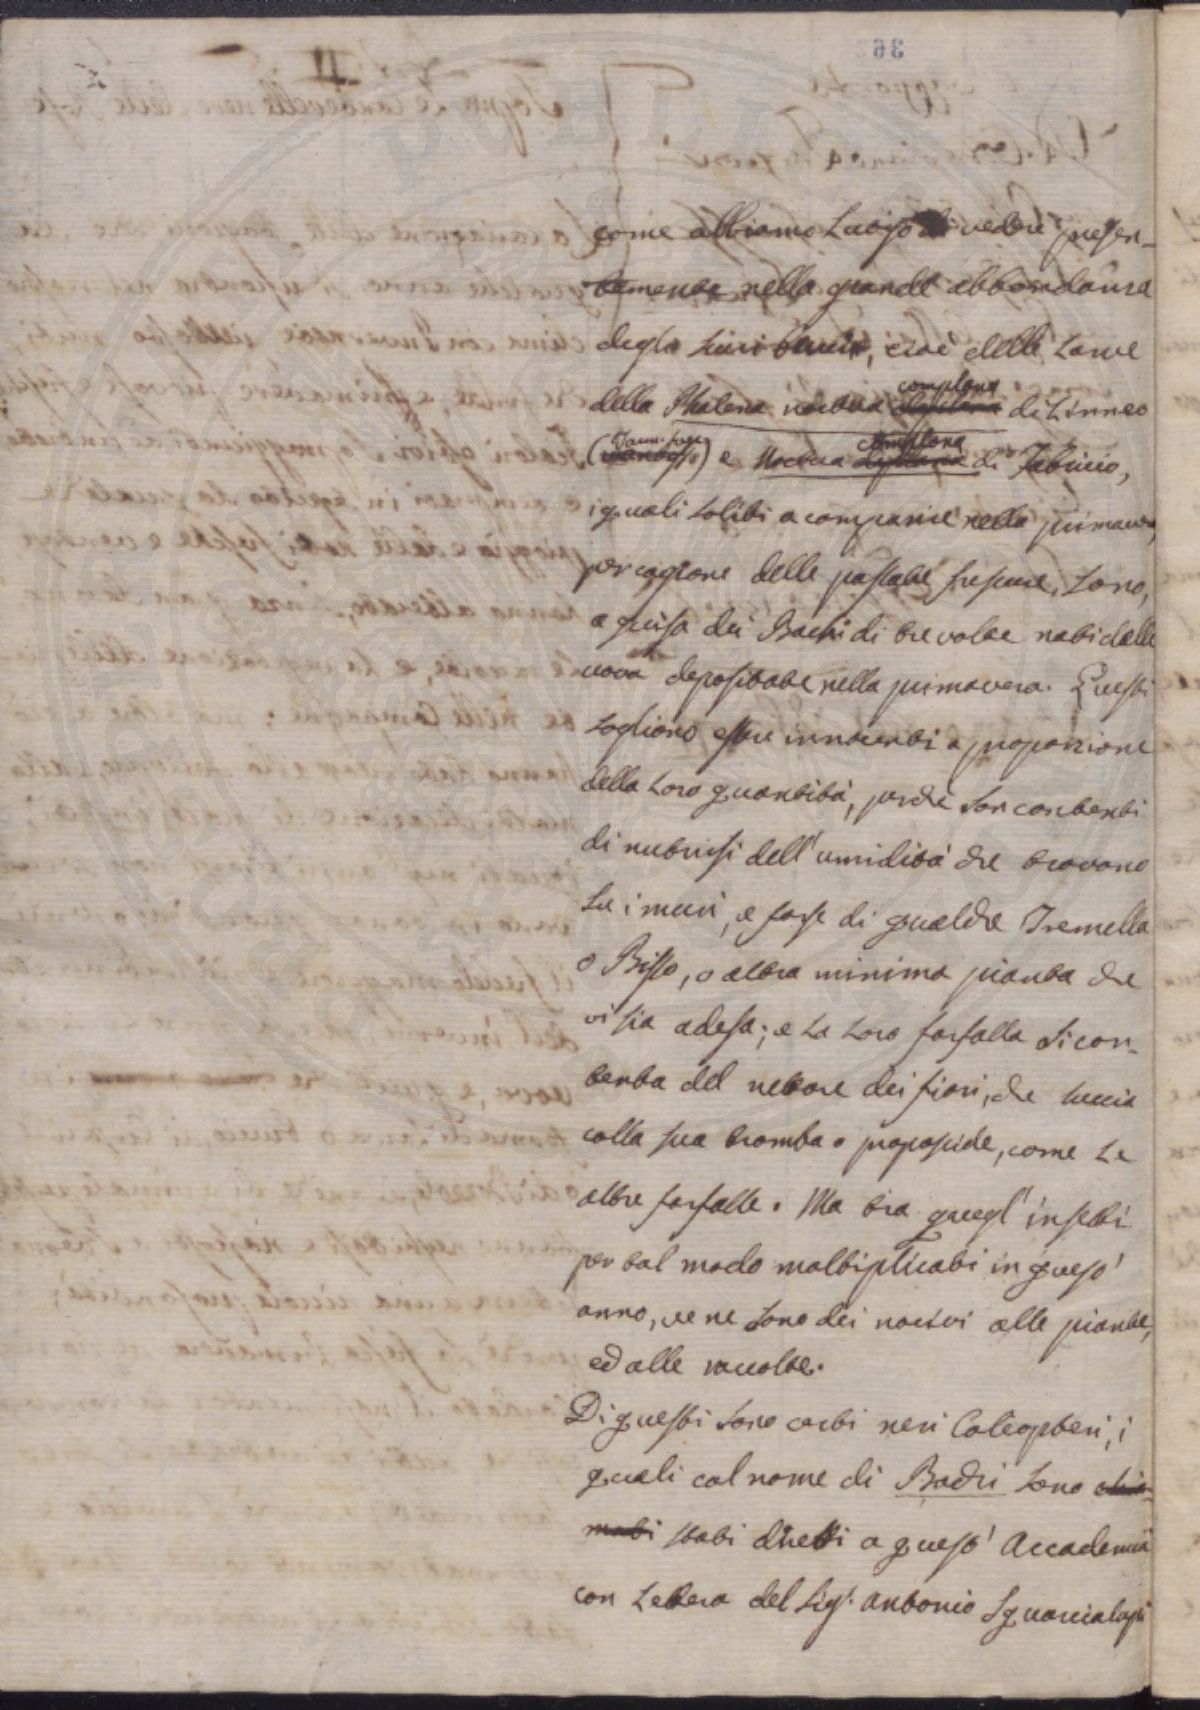 come abbiamo luogo di vedere presen-
temente nella grande abbondanza
degli , cioè delle Larve
della Phalena noctua complana di Linneo
(Faun. ) e Noctua complana di Fabricio,
i quali soliti a comparire nella primavera,
per cagione delle passate frescure, sono,
a guisa dei Bachi di tre volte nati dalle
uova depositate nella primavera. Questi
sogliono essere innocenti a proporzione
della loro quantità, perchè son contenti
di nutrirsi dell'umidità che trovano
su i muri, e forse di qualche Tremella
o Bisso, o altra minima pianta che
vi sia adesa; e la loro farfalla si con-
tenta del nettare dei fiori, che succia
colla sua tromba o proposcide, come le
altre farfalle. Ma tra quegl'insetti
per tal modo moltiplicati in quest'
anno, ve ne sono dei nocivi alle piante,
ed alle raccolte.
Di questi sono certi neri Coleopteri, i
quali col nome di Bachi sono chia-
mati stati diretti a quest'Accademia
con Lettera del Sig.r Antonio Squarcialupi